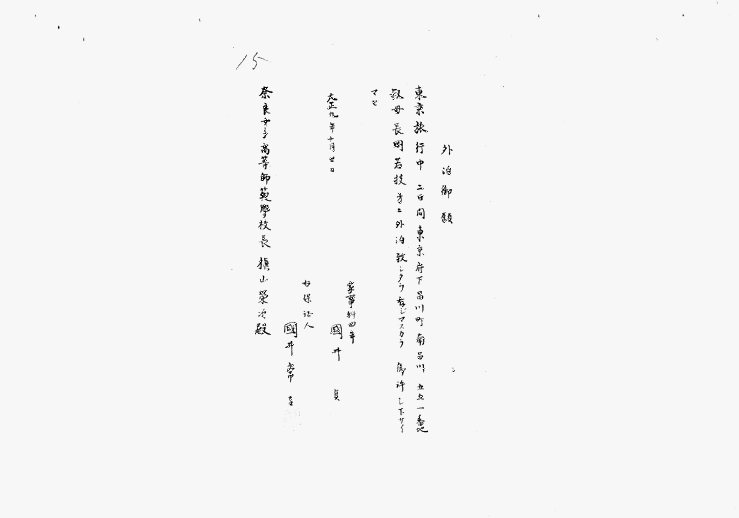 15
外泊御願
東京旅行中 二日間東京府下品川町南品川五五一番地
叔母長岡若枝方ニ外泊致シタウ存ジマスカラ 御許シ下サイ
マセ
大正九年十月廿日
家事科四年
國井 貞
右保証人
國井常吉
奈良女子高等師範學校長 槇山榮次殿